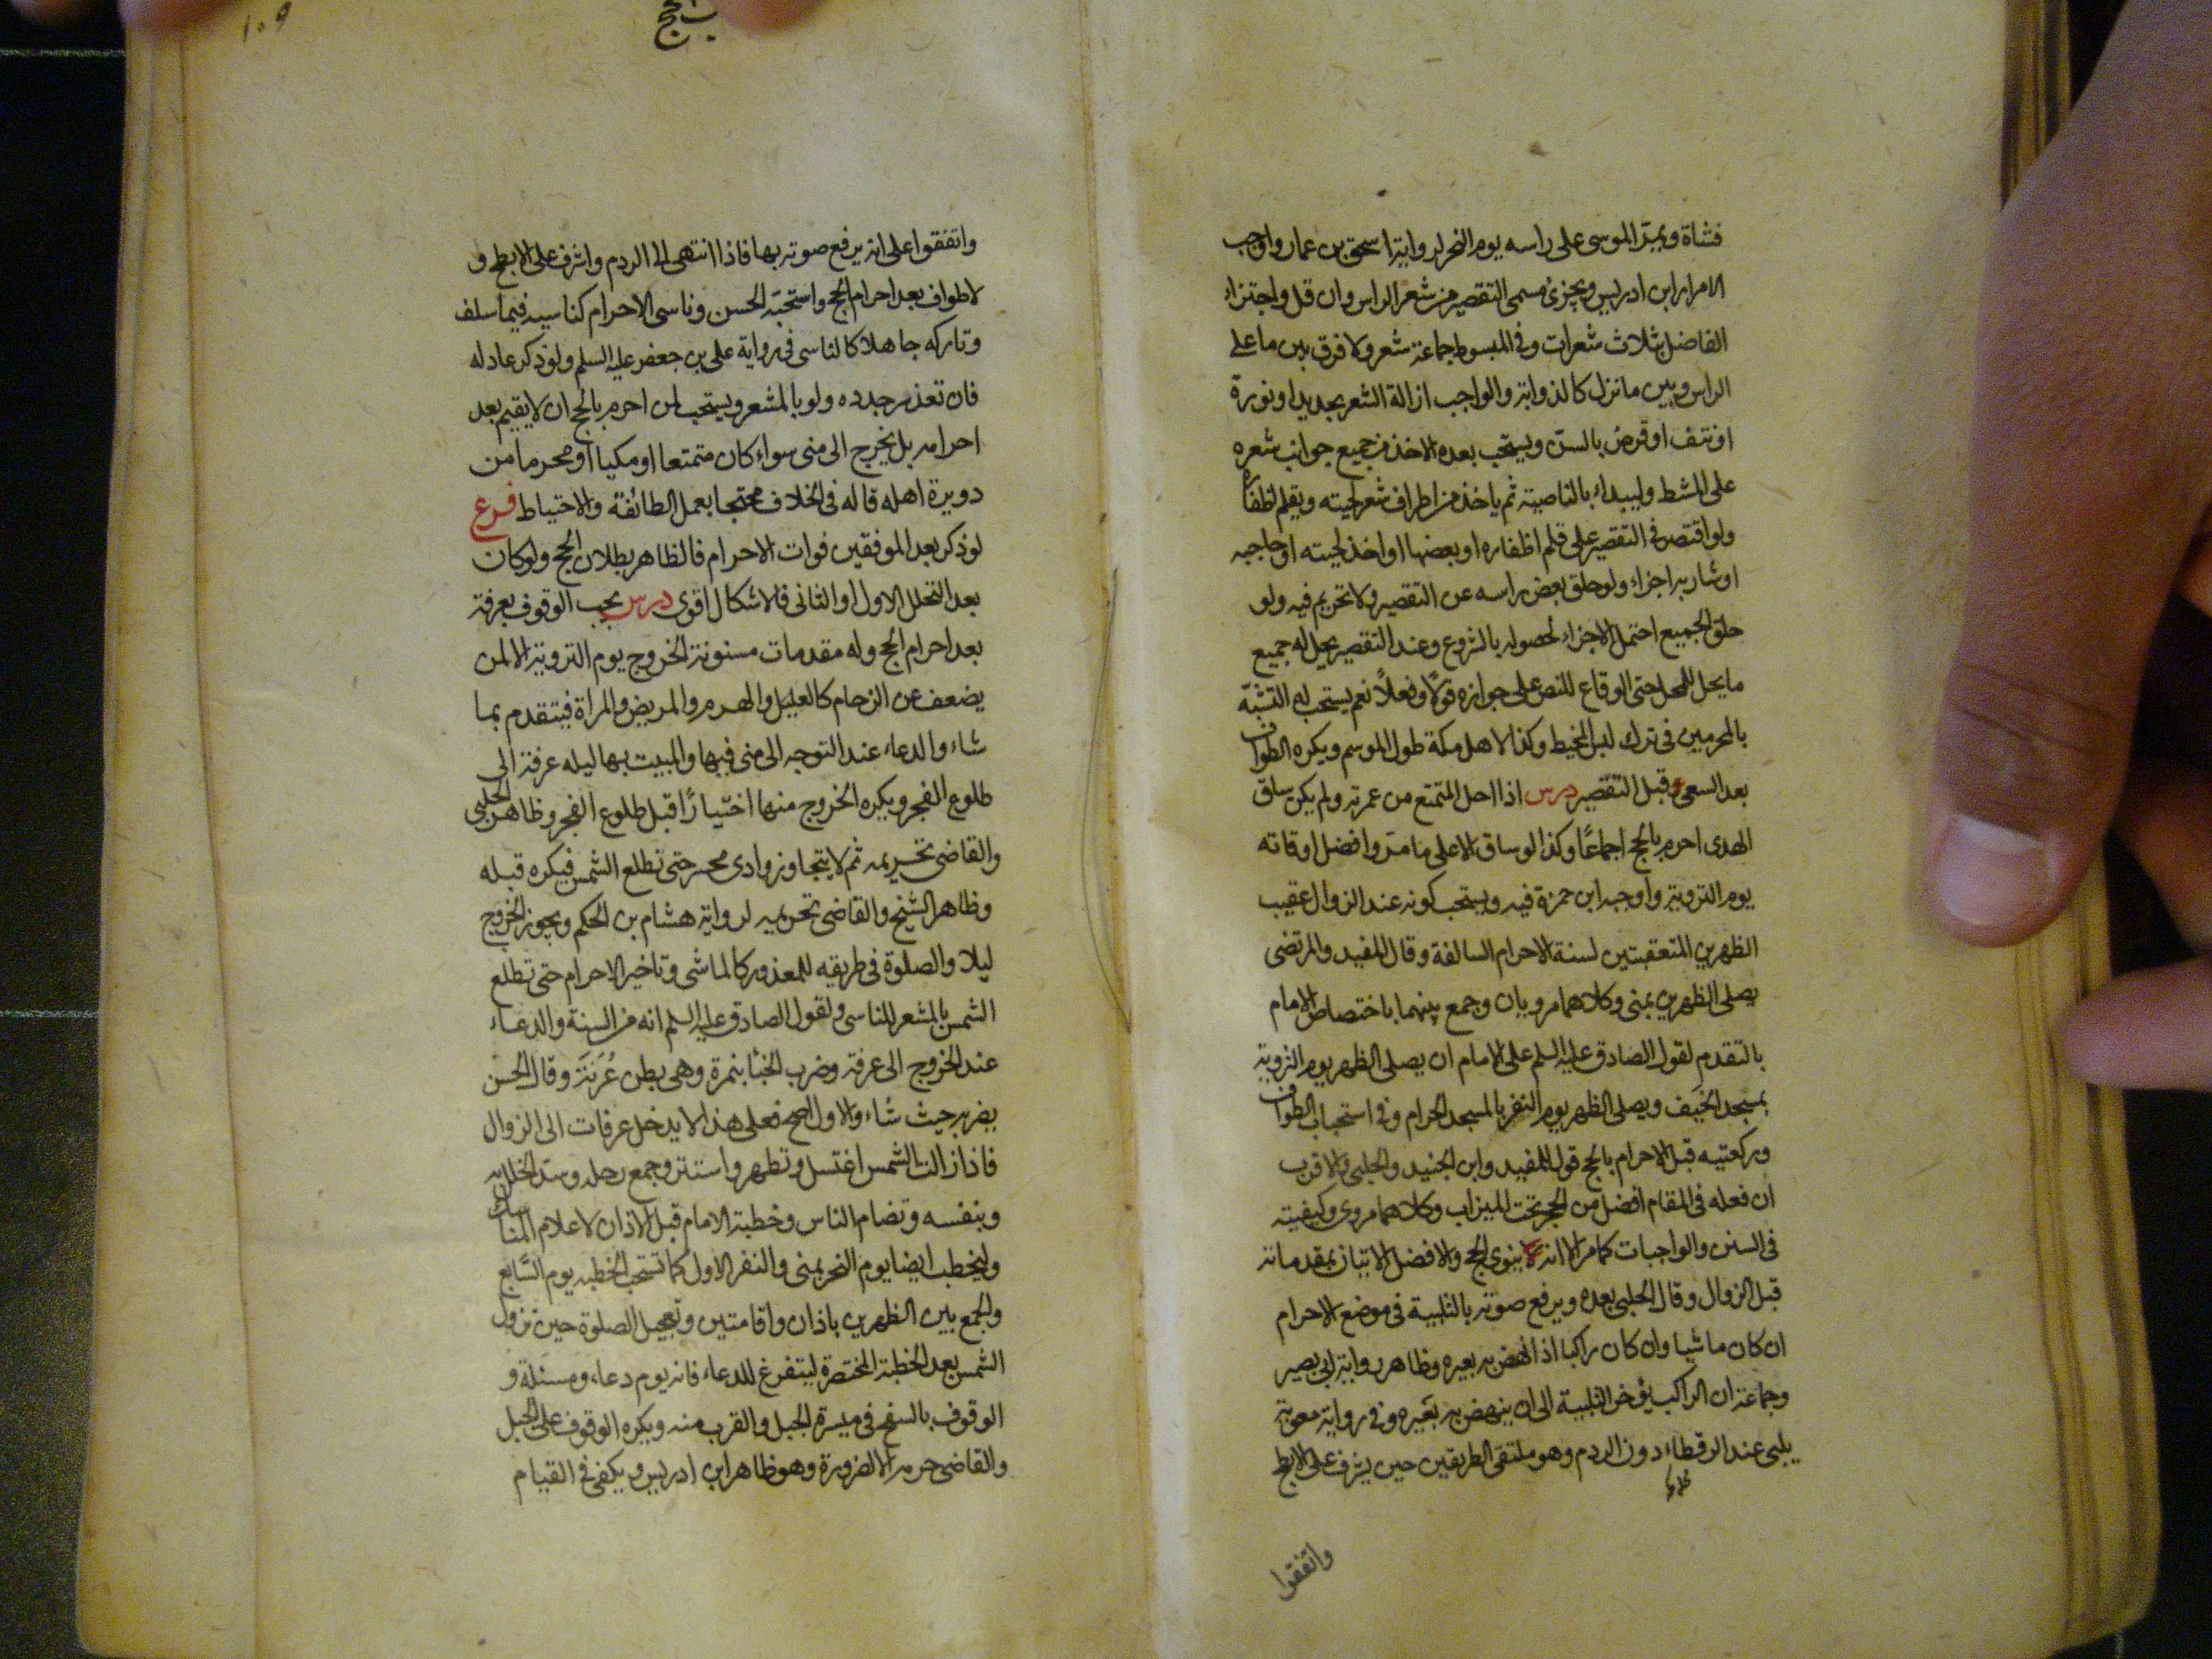 فشاة ويمرّ الموسى على راسه يوم النحر لرواية اسحق بن عمار واوجب
الامرار ابن ادريس ويجزئ مسمى التقصير من شعر الراس وان قل واجتزاء
الفاضل بثلاث شعرات وفي المبسوط جماعة شعر ولا فرق بين ما على
الراس وبين ما نزل كالذوابة والواجب ازالة الشعر بحديد او نورة
او نتف او قرض بالسنّ ويستحب بعده الاخذ من جميع جوانب شعره
على المشط وليبداء بالناصية ثم ياخذ من اطراف شعر لحيته ويقلم اظفاره
ولو اقتصر في التقصير على قلم اظفاره او بعضها او اخذ لحيته او حاجبه
او شاربه اجزاء ولو حلق بعض راسه عن التقصير ولا تحريم فيه ولو
حلق الجميع احتمل الاجزاء لحصوله بالشروع وعند التقصير يحل له جميع
ما يحل للمحل حتى الوقاع للنص على جوازه قولاً وفعلاً نعم يستحب له التشبه
بالمحرمين في ترك لبس المخيط وكذا لاهل مكة طول الموسم ويكره الطواف
بعد السعي وقبل التقصير درس اذا احل المتمتع من عمرته ولم يكن ساق
الهدى احرم بالحج اجماعًا وكذا لو ساق الاعلى ما مرّ وافضل اوقاته
يوم التروية واوجبه ابن حمزة فيه ويستحب كونه عند الزوال عقيب
الظهرين المتعقبتين لسنة الاحرام السالفة وقال المفيد والمرتضى
يصلى الظهرين بمنى وكلاهما مرويان وجمع بينهما باختصاص الامام
بالتقدم لقول الصادق عليه السلم على الامام ان يصلى الظهر يوم التروية
بمسجد الخيف ويصلى الظهر يوم النفر بالمسجد الحرام وفي استحباب الطواف
وركعتيه قبل الاحرام بالحج قول للمفيد وابن الجنيد والحلبي والاقرب
ان فعله في المقام افضل من الحجر تحت الميزاب وكلاهما مروى وكيفيته
في السنن والواجبات كما مر الا انه ينوى الحج والافضل الاتيان بمقدماته
قبل الزوال وقال الحلبي بعده ويرفع صوته بالتلبية في موضع الاحرام
ان كان ماشيا وان كان راكبا اذا نهض به بعيره وظاهر رواية ابي بصير
وجماعة ان الراكب يؤخر التلبية الى ان ينهض به بعيره وفي رواية معوية
يلبي عند الرقطاء دون الردم وهو ملتقى الطريقين حين يشرف على الابطح
واتفقوا
باب الحج
١٠٩
واتفقوا على انه يرفع صوته بها فاذا انتهى الى الردم واشرف على الابطح و
لا طواف بعد احرام الحج واستحبّه الحسن وناسى الاحرام كناسيه فيما سلف
وتاركه جاهلا كالناسى في رواية على بن جعفر عليه السلم ولو ذكر عاد له
فان تعذر جدده ولو بالمشعر ويستحب لمن احرم بالحج ان لا يقيم بعد
احرامه بل يخرج الى منى سواء كان متمتعا او مكيا او محرما من
دويرة اهله قاله في الخلاف محتجا بعمل الطائفة والاحتياط فرع
لو ذكر بعد الموفقين فوات الاحرام فالظاهر بطلان الحج ولو كان
بعد التحلل الاول او الثانى فالاشكال اقوى درس يجب الوقوف بعرفة
بعد احرام الحج وله مقدمات مسنونة الخروج يوم التروية الا لمن
يضعف عن الزحام كالعليل والهرم والمريض والمراة فيتقدم بما
شاء والدعاء عند التوجه الى منى وفيها والمبيت بها ليله عرفة الى
طلوع الفجر ويكره الخروج منها اختيارًا قبل طلوع الفجر وظاهر الحلبي
والقاضى تحريمه ثم لا يتجاوز وادى محسر حتى تطلع الشمس فيكره قبله
وظاهر الشيخ والقاضى تحريمه لرواية هشام بن الحكم ويجوز الخروج
ليلا والصلوة في طريقه للمعذور كالماشى وتاخير الاحرام حتى تطلع
الشمس بالمشعر للناسى ولقول الصادق عليه السلم انه من السنة والدعاء
عند الخروج الى عرفة وضرب الخبا بنمرة وهى بطن عُرَنَة وقال الحسن
يضربه حيث شاء والاول اصح فعلى هذا لا يدخل عرفات الى الزوال
فاذا زالت الشمس اغتسل وتطهر واستتر وجمع رحله وسد الخلل به
وبنفسه وتضام الناس وخطبة الامام قبل الاذان لاعلام المناسك
وليخطب ايضا يوم النحر بمنى والنفر الاول كما تستحب الخطبه يوم السابع
والجمع بين الظهرين باذان واقامتين وتعجيل الصلوة حين تزول
الشمس بعد الخطبة المختصرة ليتفرغ للدعاء فانه يوم دعاء ومسئلة و
الوقوف بالسفح في ميسرة الجبل والقرب منه ويكره الوقوف على الجبل
والقاضى حرمه الا لضرورة وهو ظاهر ابن ادريس ويكفى في القيام